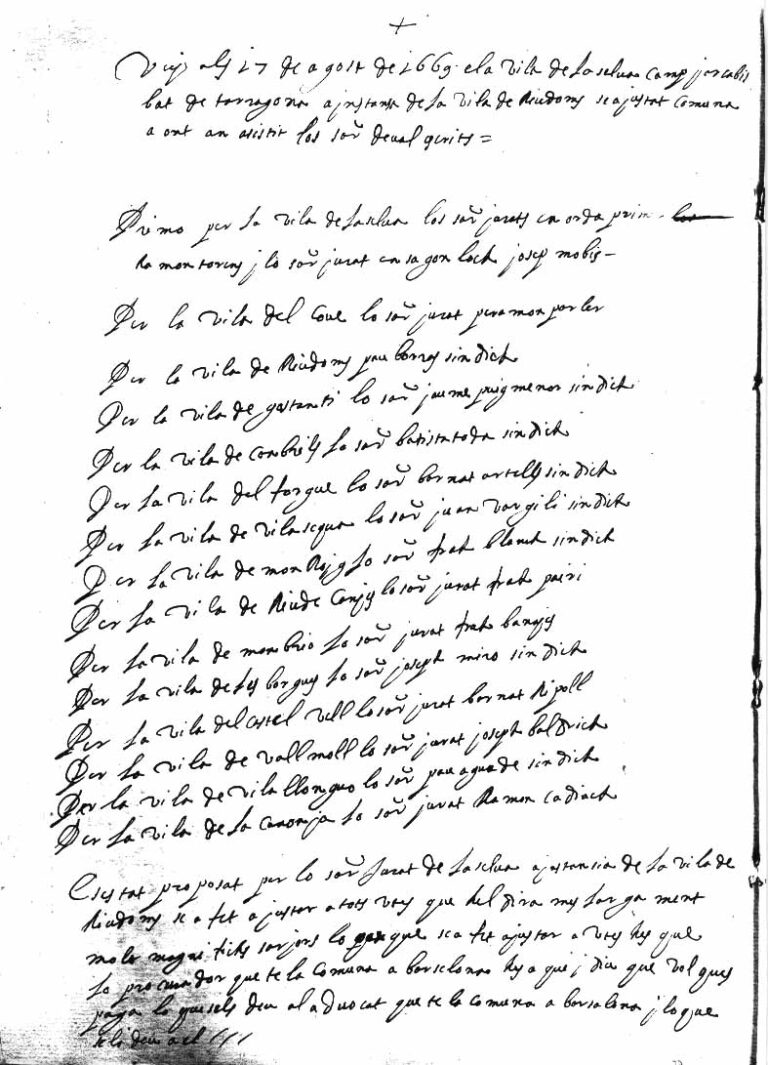 +
Vuy als 17 de agost de 1669 e la vila de la selva camp j arcabis
bat de tarragona a instansa de la vila de Riudoms se ajustat comuna
a ont an asistit los sors devall scrits =
Primo per la vila de la selva los sors jurats en orda prim
Ramon torens j lo sor jurat en sagon loch josep mobis -
Per la vila del Coue lo sor jurat pera mon porter
Per la vila de Riudoms pau borras sindich
Per la vila de gostanti lo sor jaume puigmenor sindich
Per la vila de Conbrils lo sor batista toda sindich
Per la vila del forgue lo sor bernat ortells sindich
Per la vila de vilasequa lo sor juan vorgili sindich
Per la vila de mon Rojg lo sor frah blanch sindich
Per la vila de Riude Canjs lo sor jurat frah pairi
Per la vila de monbrio lo sor jurat frah bangs
Per la vila de les borgus lo sor joseph miro sindich
Per la vila del Castel vell lo sor jurat bernat Ripoll
Per la vila de vallmoll lo sor jurat joseph baldrich
Per la vila de vilallonguo lo sor pau aguade sindich
Per la vila de la Canonja lo sor jurat Ramon Cadiach
Es estat proposat per lo sor jurat de la selva a jstansia de la vila de
Riudoms se a fet ajustar a tots vms que hel dira mes largament
molt magnifichs senjors lo que se a fet ajustar a vms hes que
lo procurador que te la Comuna a barselona hes aqui j diu que vol que s
paga lo que sels deu al advocat que te la comuna a barsalona j lo que
se li deu a ell